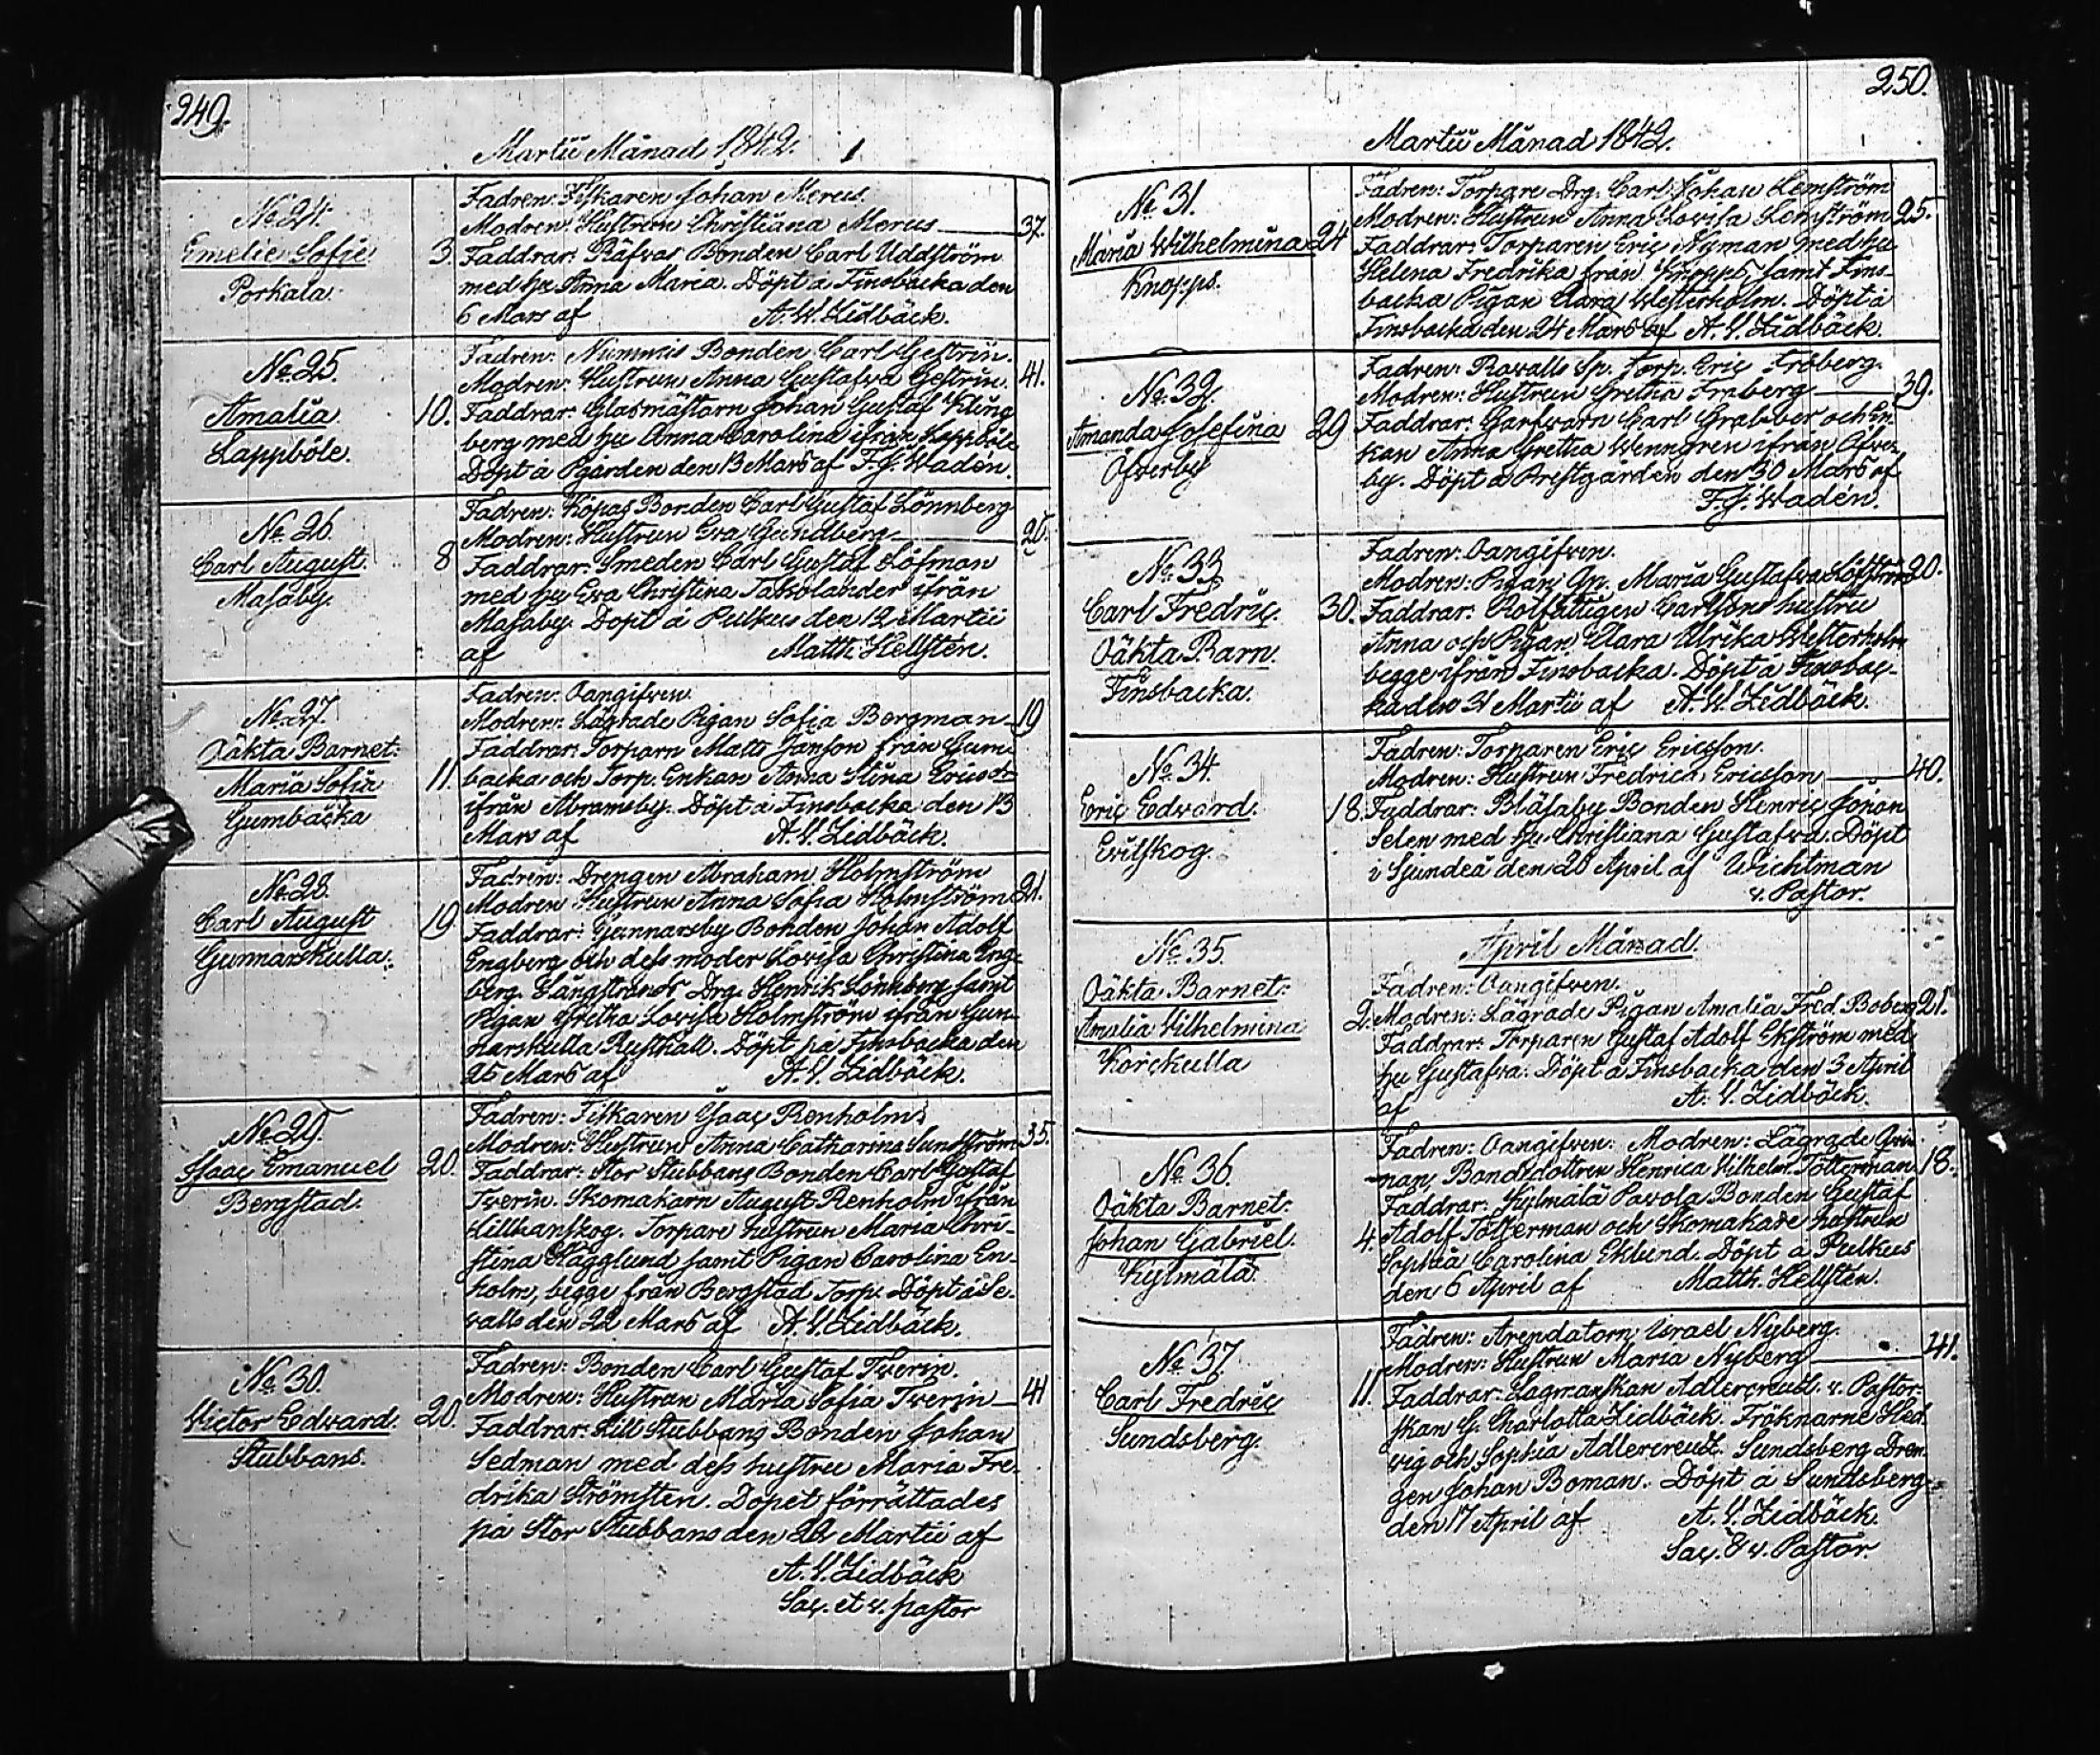 249.
Martii Månad 1842.
No 24.
Emelie Sofie
Porkala.
3.
Fadren: Fiskaren Johan Mereus.
Modren: Hustrun Christiana Morus 37.
Faddrar: Räfvas Bonden Carl Uddström
med hu Anna Maria. Döpt å Finsbacka den
6 Mars af A. W. Lidbäck.
No 25.
Amalia.
Lappböle.
10.
Fadren: Nummis Bonden Carl Gestrin.
Modren: Hustrun Anna Gustafva Gestrin. 41.
Faddrar: Glasmästarn Johan Gustaf Kling
berg med hu Anna Carolina ifrån Lappböle
Döpt å Pgården den 13 Mars af F. J. Wadén.
No 26.
Carl August.
Masaby.
8
Fadren: Köpas Bonden Carl Gustaf Lönnberg
Modren: Hustrun Eva Grundberg 26.
Faddrar: Smeden Carl Gustaf Löfman
med hu Eva Christina ifrån
Masaby. Döpt å Pulkus den 12 Martii
af Matth: Hellsten.
No 27.
Oäkta Barnet.
Maria Sofia
Gumbäcka
11.
Fadren: Oangifven.
Modren: Lägrade Pigan Sofia Bergman 19
Faddrar: Torparn Matts Janson från Gum-
backa och Torp. Enkan Anna Stina Ericsdr
ifrån Abramsby. Döpt å Finsbacka den 13
Mars af A. W. Lidbäck.
No 28.
Carl August
Gunnarskulla.
19
Fadren: Drengen Abraham Holmström
Modren Hustrun Anna Sofia Holmström 21.
Faddrar: Gunnarsby Bonden Johan Adolf
Engberg och dess moder Lovisa Christina Eng-
berg. Långstrands Drg. Henrik Lönnberg samt
Pigan Gretha Lovisa Holmström ifrån Gun-
narskulla Rusthåll. Döpt på Finsbacka den
25 Mars af A. W. Lidbäck.
No 29.
Isaac Emanuel
Bergstad.
20.
Fadren: Fiskaren Isaac Renholm.
Modren: Hustrun Anna Catharina Sundström 35.
Faddrar: Stor Stubbans Bonden Carl Gustaf
Tverin. Skomakarn August Renholm ifrån
Lillkanskog. Torpare hustrun Maria Chri-
stina Hägglund samt Pigan Carolina En-
holm, begge från Bergstad Torp. Döpt å Se-
valls den 22 Mars af A. W. Lidbäck.
No 30.
Victor Edvard.
Stubbans.
20.
Fadren: Bonden Carl Gustaf Tverin.
Modren: Hustrun Maria Sofia Tverin 41
Faddrar: Lill Stubbans Bonden Johan
Sedman med dess hustru Maria Fre-
drika Strömsten. Dopet förrättades
på Stor Stubbans den 22 Martii af
A. W. Lidbäck
Sac. et v. pastor
250.
Martii Månad 1842.
No 31.
Maria Wilhelmina
Knopps.
24
Fadren: Torpare Drg. Carl Johan Lemström
Modren: Hustrun Anna Lovisa Lemström 25.
Faddrar: Torparen Eric Nyman med hu
Helena Fredrika från Knopps samt Fins-
backa Pigan Clara Westerholm. Döpt å
Finsbacka den 24 Mars af A. W. Lidbäck.
No 32.
Amanda Josefina
Öfverby
29
Fadren: Ravalls Sp. Torp. Eric Fröberg.
Modren: Hustrun Gretha Fröberg 39.
Faddrar: Garfvarn Carl Gralber och En-
kan Anna Gretha Wenngren ifrån Öfver-
by. Döpt å Prestgården den 30 Mars af
F. J. Wadén.
No 33
Carl Fredric.
Oäkta Barn.
Finsbacka.
30.
Fadren: Oangifven.
Modren: Pigan Qn. Maria Gustafva Löfström 20.
Faddrar: Carlsons hustru
Anna och Pigan Clara Ulrika Westerholm
begge ifrån Finsbacka. Döpt å Finsbac-
ka den 31 Martii af A. W. Lidbäck.
No 34.
Eric Edvard.
Evitskog.
18.
Fadren: Torparen Eric Ericsson.
Modren: Hustrun Fredrica Ericsson 40.
Faddrar: Blåsaby Bonden Henric Johan
Selen med hu Christiana Gustafva. Döpt
i Sjundeå den 20 April af Wichtman
v. Pastor.
April Månad.
No 35.
Oäkta Barnet:
Amalia Wilhelmina
Korckulla
2.
Fadren: Oangifven.
Modren: Lägrade Pigan Amalia Fred. Boberg 21.
Faddrar: Torparen Gustaf Adolf Ekström med
hu Gustafva. Döpt å Finsbacka den 3 April
af A. W. Lidbäck.
No 36.
Oäkta Barnet:
Johan Gabriel.
Kylmälä.
4.
Fadren: Oangifven: Modren: Lägrade Qvin-
nan, Bondedottren Henrica Wilhelm. Tötterman 18.
Faddrar: Kylmälä Pavola Bonden Gustaf
Adolf Tötterman och Skomakare hustrun
Sophia Carolina Eklund. Döpt å Pulkus
den 6 April af Matth. Hellsten.
No 37.
Carl Fredric
Sundsberg.
11.
Fadren: Arendatorn Israel Nyberg.
Modren: Hustrun Maria Nyberg 41.
Faddrar: Lagmanskan Adlercreutz. v. Pastor-
skan G. Charlotta Lidbäck. Fröknarne Hed-
vig och Sophia Adlercreutz. Sundsberg Dren-
gen Johan Boman. Döpt å Sundsberg
den 17 April af A. W. Lidbäck.
Sac. & v. Pastor.